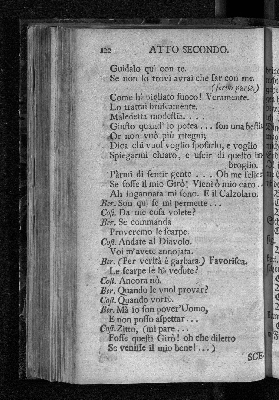 122 ATTO SECONDO.
Guidalo quì con te.
Se non lo trovi avrai che far con me.
(servo parte.)
Come hà pigliato fuoco! Veramente.
Lo trattai bruscamente.
Maledetta modestia....
Giusto quand' io potea... son una bestia
Or non vuò più ritegni;
Dica chi vuol voglio sposarlo, e voglio
Spiegarmi chiaro, e uscir di questo im-
broglio.
Parmi di sentir gente.... Oh me felice
Se fosse il mio Girò! Vienì ò mio caro...
Ah Ingannata mi sono. E il Calzolaro.
Ber. Son quì se mi permette...
Cost. Da me cosa volete?
Ber. Se commanda
Proveremo le scarpe.
Cost. Andate al Diavolo.
Voi m'avete annojata.
Ber. (Per verità è garbata.) Favorisca.
Le scarpe le hà vedute?
Cost. Ancora nò.
Ber. Quando le vuol provar?
Cost. Quando vorrò.
Ber. Mà io son pover'Uomo,
E non posso aspettar...
Cost. Zitto, (mi pare...
Fosse questi Girò! oh che diletto
Se venisse il mio bene!...)
SCE-